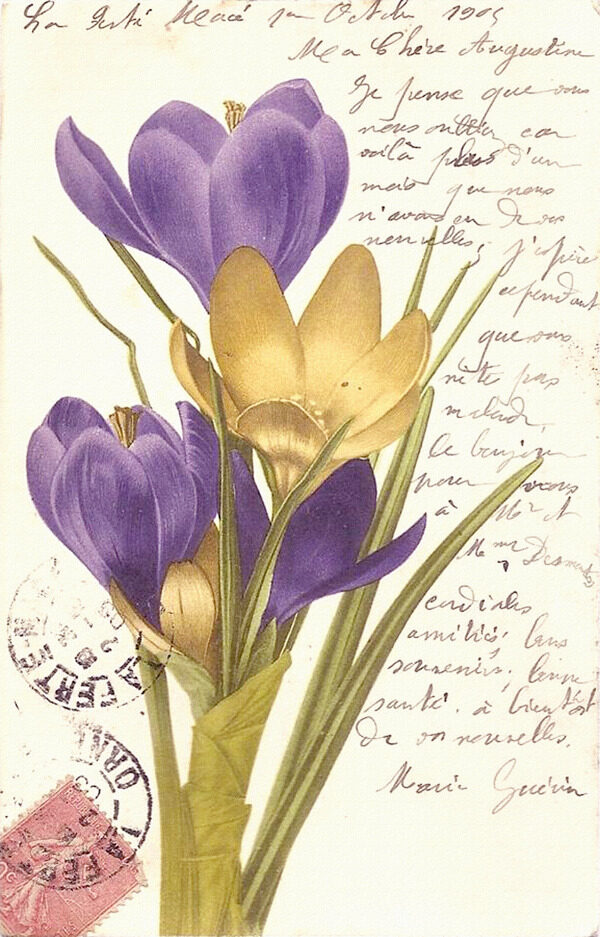 La Ferté Macé 1er Octobre 1905
Ma Chère Augustine
Je pense que vous
nous oubliez car
voilà plus d'un
mois que nous
n'avons eu de vos
nouvelles; j'espère
cependant
que vous
n'ête pas
malade,
le bonjour
pour vous
à Mr et
Mme
cordiales
amitiés, bons
souvenirs, bonne
santé. à bientôt
de vos nouvelles.
Marie Guérin
LA FERTÉ-M
ORNE
LA FERTÉ